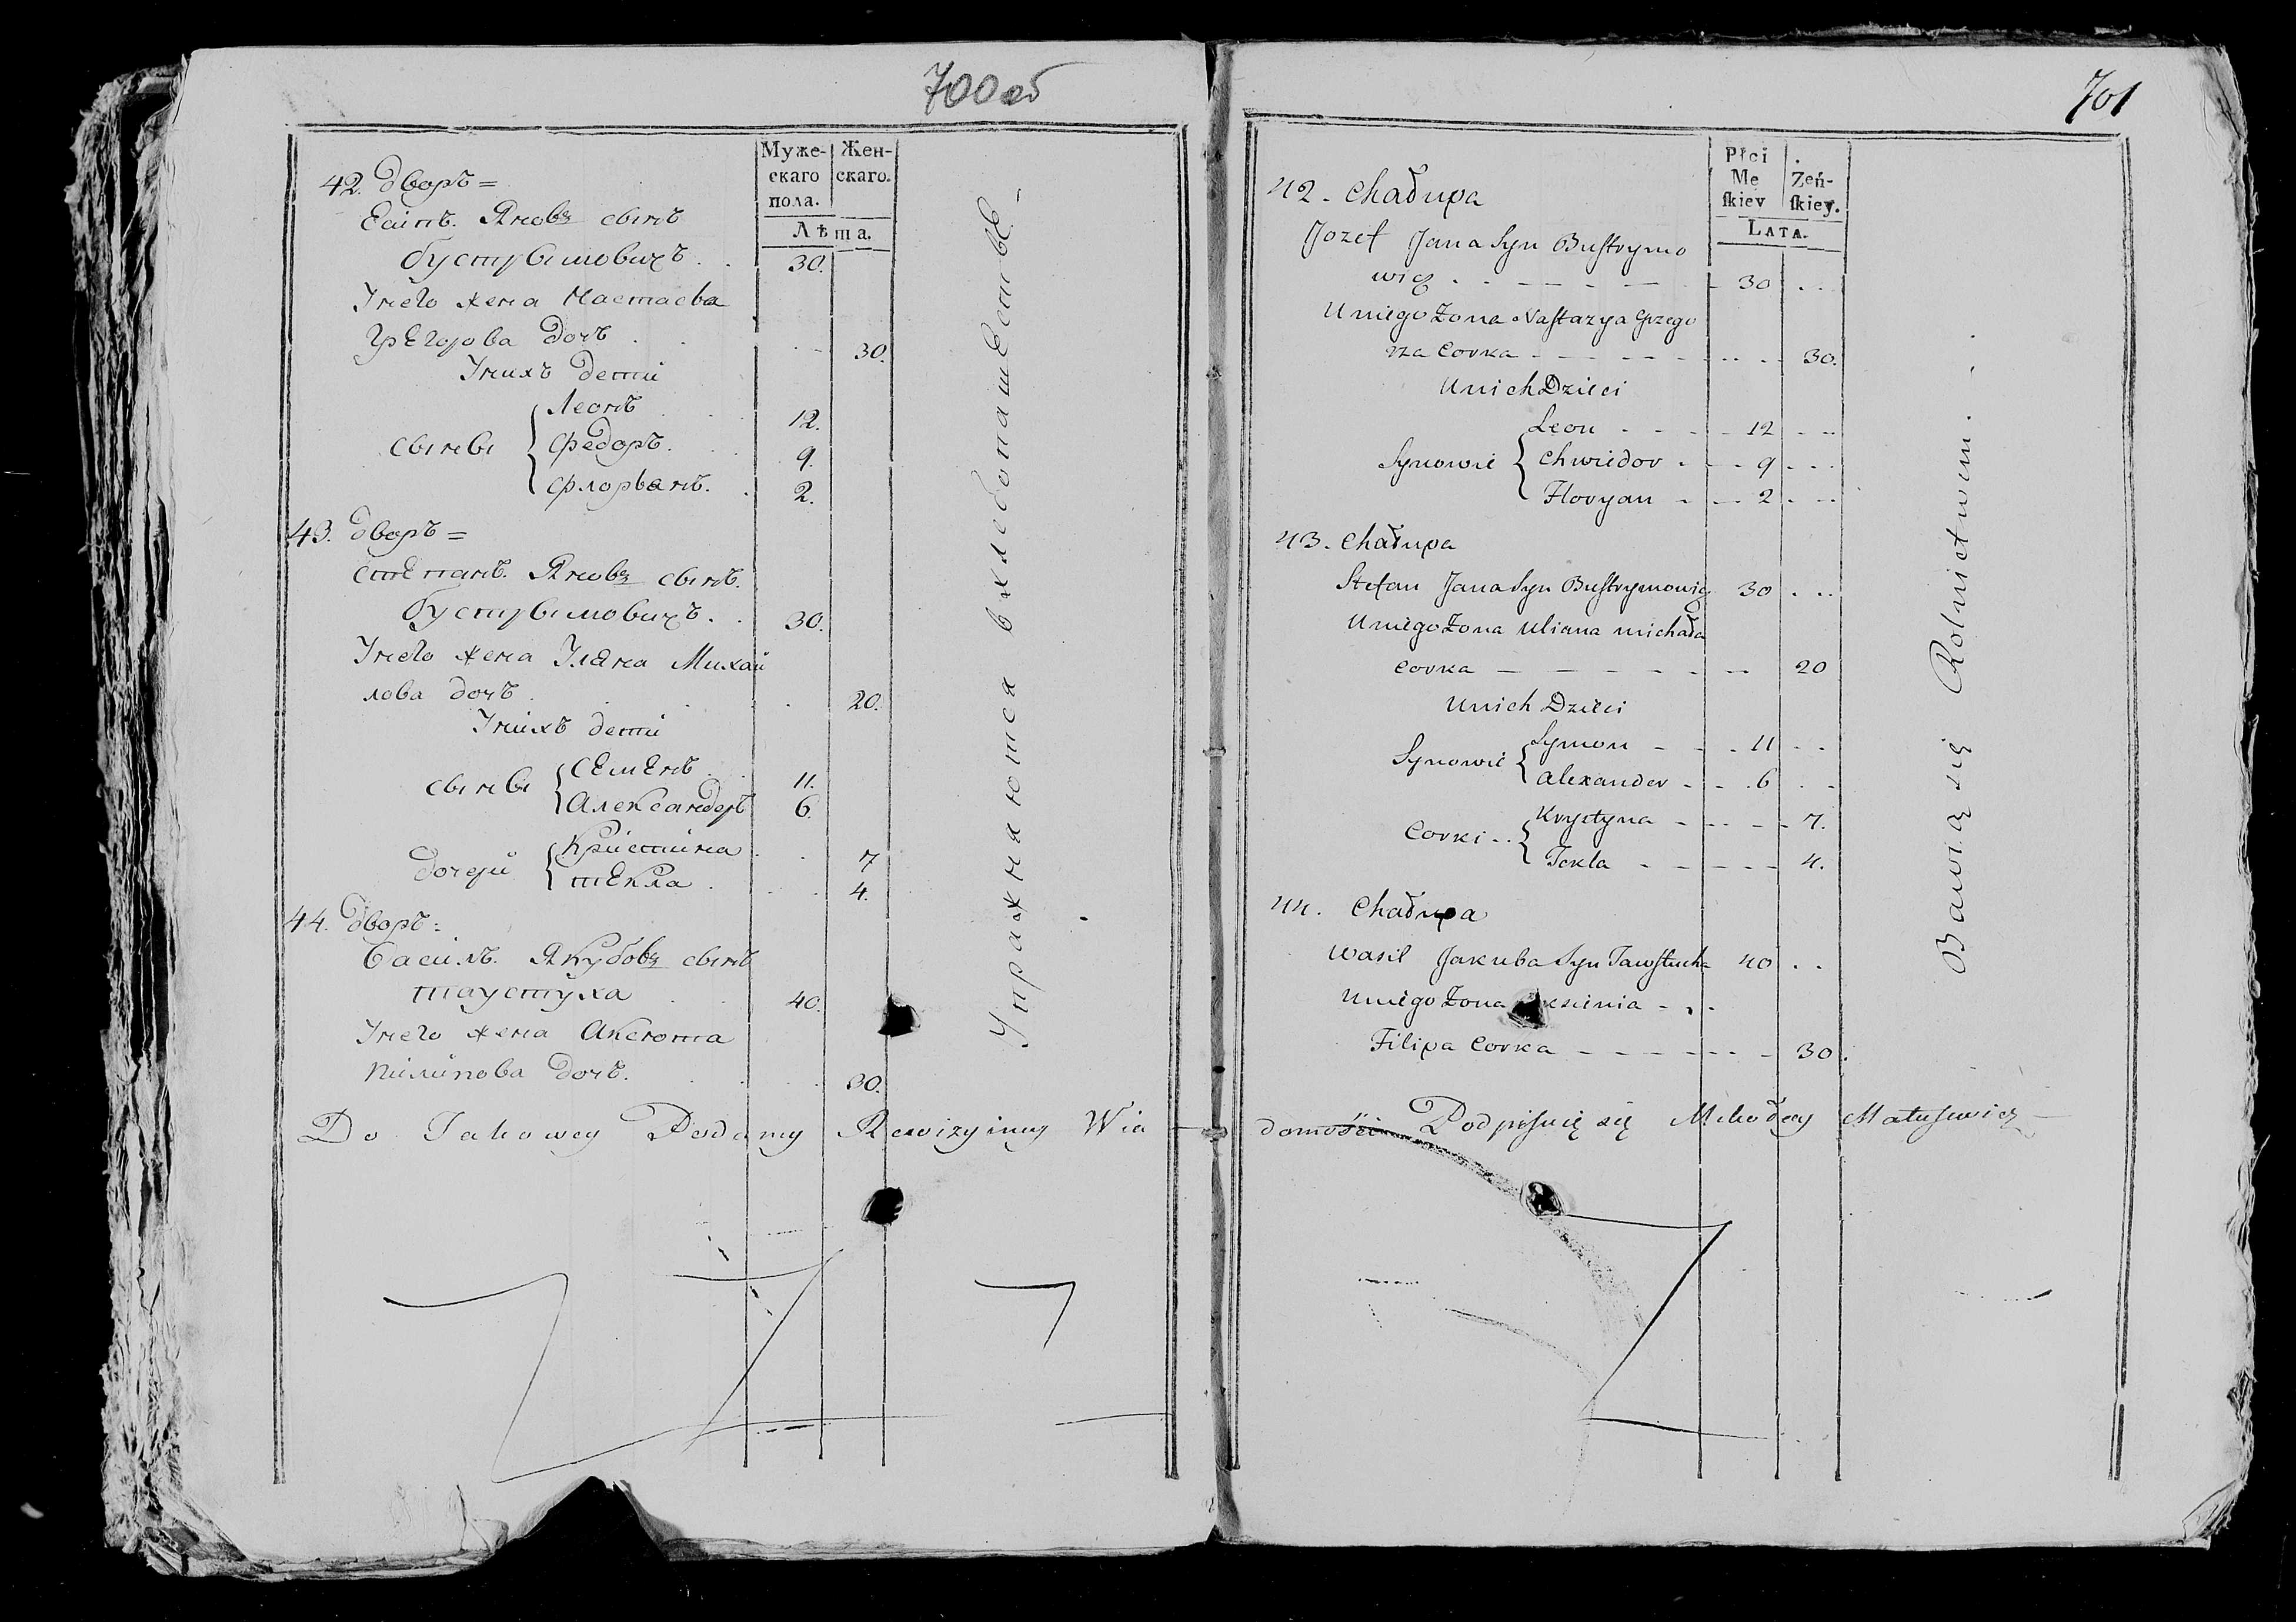 700 об
Муже-
скаго
пола.
Жен-
скаго.
Лѣта.
42. дворъ =
Есипъ. Яновъ сынъ
бустрымовичъ. 30.
Унего жена Настасва
Грегорова дочъ 30.
Унихъ дети
сыны
Леонъ 12.
Федоръ. 9.
Флорьянъ. 2.
43. дворъ =
степанъ. Яновъ сынъ.
бустрымовичъ. 30.
Унего жена Уляна Михай
лова дочъ 20.
Унихъ дети
сыны
семенъ 11.
Александеръ 6.
дочери
Кристина 7
текла 4.
44. дворъ:
Василъ. Якубовъ сынъ
таустуха 40.
Унего жена
Пилипова дочъ. 30.
Упражняются вхлебопашестве.
Do Takowey Podaney Rewizyiney Wia
701
Płci
Me
skiey
Żeń-
skiey.
LATA.
42. Chałupa
Jozef Jana Syn Bustrymo
wicz 30
Uniego Żona Nastazya Grzego
rza Corka 30.
Unich Dzieci
Synowie
Leon 12
Chwiedor 9
Floryan 2
43. Chałupa
Stefan Jana Syn Bustrymowicz 30
Uniego Żona Uliana Michała
Corka 20
Unich Dzieci
Synowie
Symon 11
Alexander 6
Corki
Krystyna 7.
Tekla 4.
44. Chałupa
Wasil Jakuba Syn Tawstucha 40
Uniego Żona
Filipa Corka 30.
Bawią się Rolnictwem.
domości Podpisuię się Mikołay Matusewicz